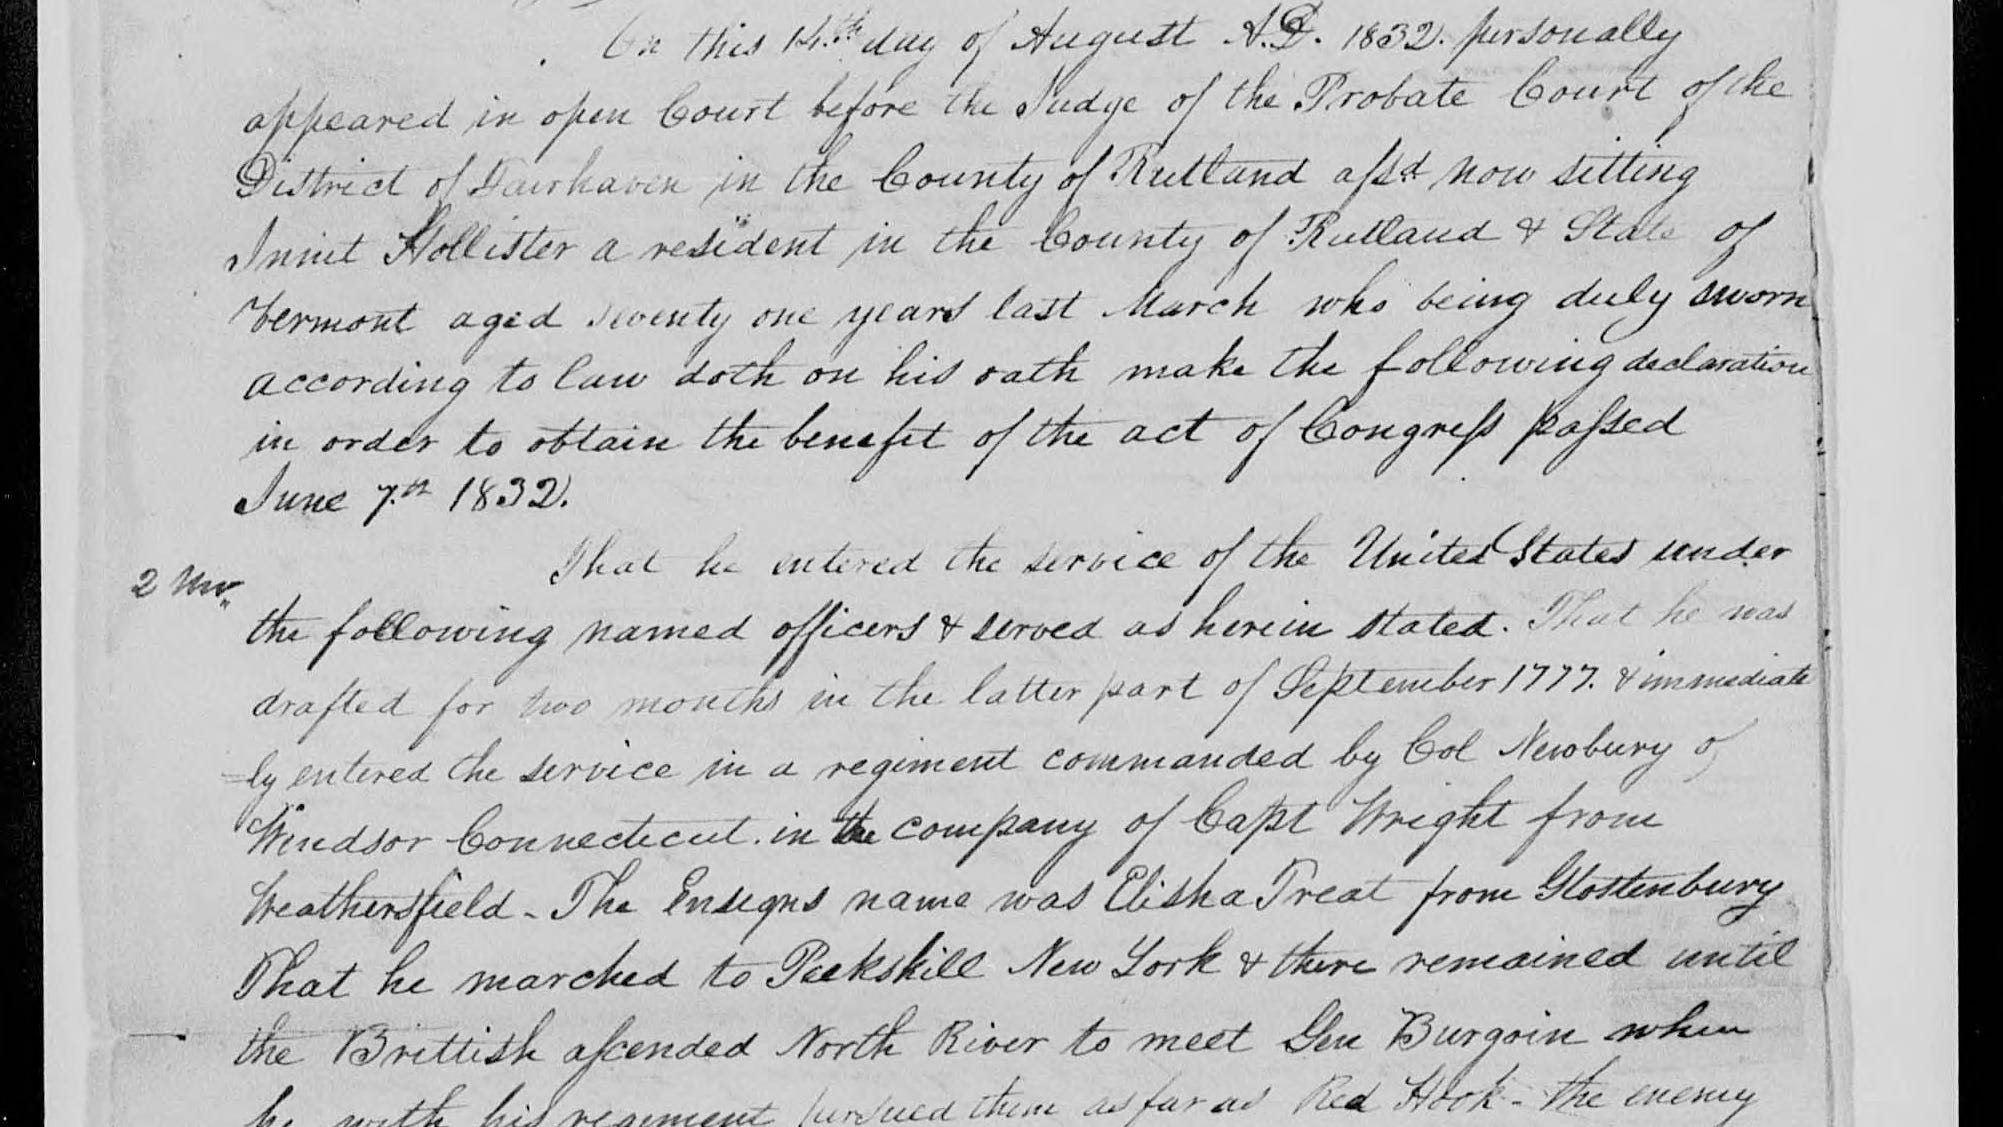 On this 14.th day of August A.D. 1832. personally
appeared in open Court before the Judge of the Probate Court of the
District of Fairhaven in the County of Rutland afsd now sitting
Innit Hollister a resident in the County of Rutland & State of
Vermont aged seventy one years last March who being duly sworn
according to law doth on his oath make the following declaration
in order to obtain the benefit of the act of Congreſs paſsed
June 7.th 1832.
That he entered the service of the United States under
2 Mo.
the following named officers & served as herein stated. That he was
drafted for two months in the latter part of September 1777. & immediate
=ly entered the service in a regiment commanded by Col Newbury of
Windsor Connecticut. in the company of Capt Wright from
Weathersfield - The Ensigns name was Elisha Treat from Glostenbury
That he marched to Peekskill New York & there remained until
the Brittish aſcended North River to meet Gen Burgoin when
he with his regiment pursued them as far as Red Hook - the enemy